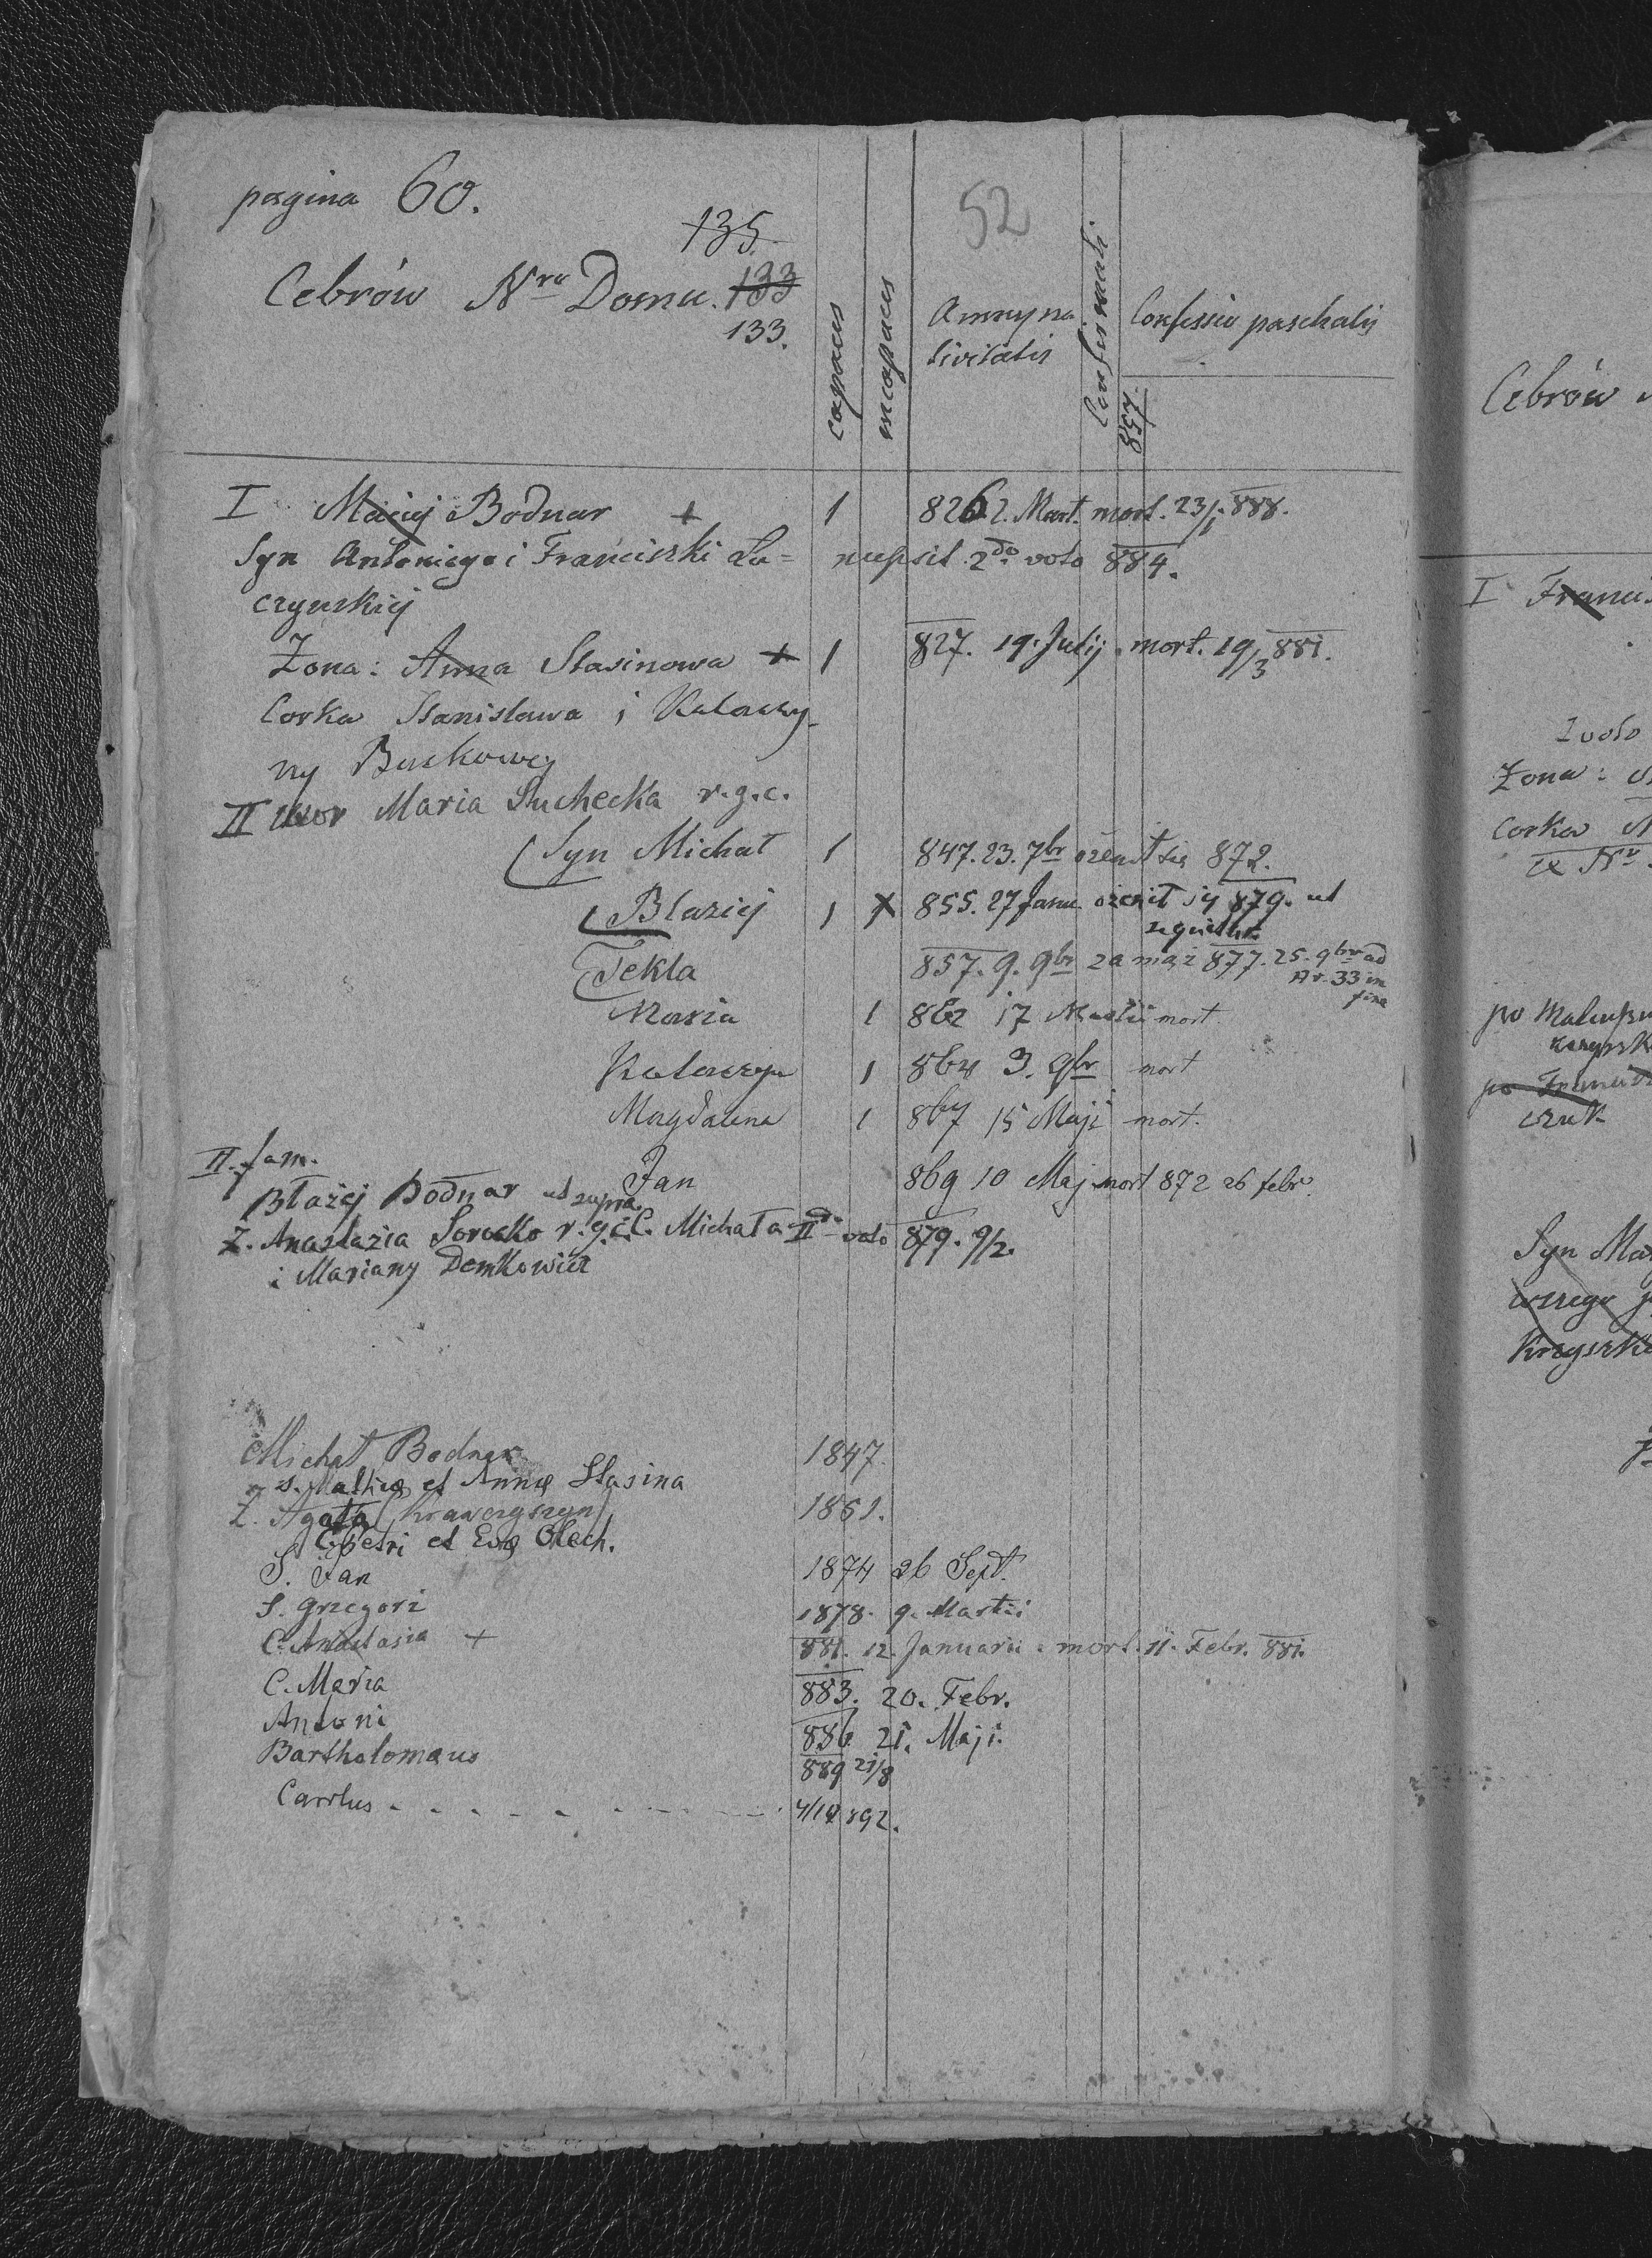 pagina 60.
52
135.
Cebrów Nro Domu. 133
133.
capaces
incapaces
Annus na
tivitatis
Confirmati
Confessio paschalis
857
I Maciej Bodnar + 1 826 2. Mart. mort. 23/1 888.
Syn Antoniego i Franciszki Lu= nupsit 2do voto 884.
czyńskiej
Żona: Anna Stasinowa + 1 827. 19. Julij. mort. 19/3 881.
Corka Stanisława i Katarzy-
ny Buskowej
II uxor Maria Suchecka r.g.c.
Syn Michał 1 847. 23. 7br ożenił się 872.
Błażej 1 X 855. 27 Janu ożenił się 879. ut
Tekla 857. 9. 9br za mąż 877. 25. 9br ad
Nr. 33 in
fine
Maria 1 862 17 Martii mort.
Katarzyna 1 864 3. 9br mort
Magdalena 1 867 15 Maji mort.
II. fam. Jan 869 10 Maj mort 872 26 febr.
Błażej Bodnar ut supra.
Ż. Anastazia Sorocko r.g.c. C. Michała IIdo voto 879. 9/2.
i Mariany Demkowicz
Michał Bodnar 1847.
s. Mathiæ et Annæ Stasina
Ż. Agata (Krawczyszyn) 1851.
C. Petri et Evæ Olech.
S. Jan 1874 26 Sept.
S. Grzegorz 1878. 9. Martii
C. Anastasia + 881. 12. Januarii. mort. 11. Febr. 881.
C. Maria 883. 20. Febr.
Antoni 886. 21. Maji.
Bartholomæus 889 21/8
Carolus 4/10 892.
Cebrów
I
I voto
Żona:
Corka
po
po
czuk
Syn